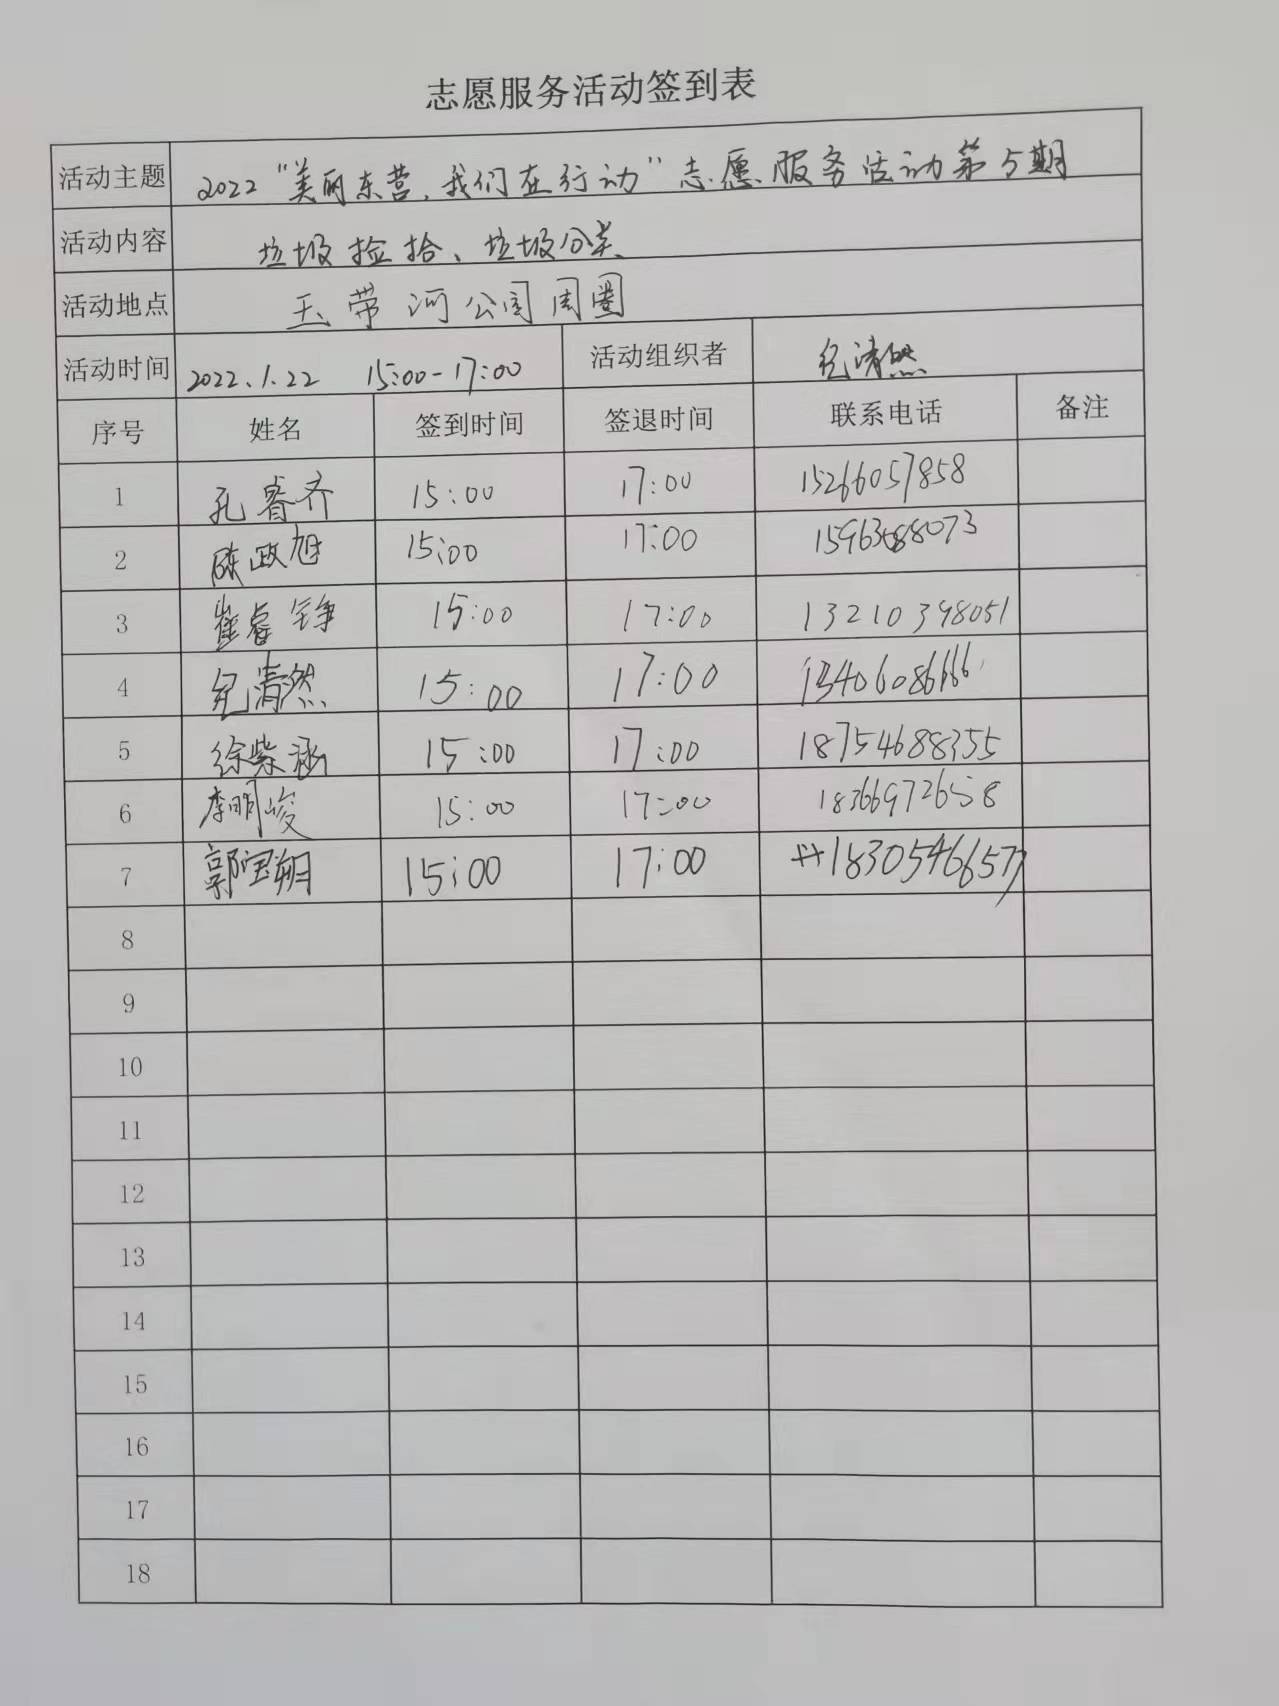 志愿服务活动签到表
活动主题 2022“美丽东营,我们在行动”志愿服务活动第5期
活动内容 垃圾捡拾、垃圾分类
活动地点 玉带河公园周圈
活动时间 2022.1.22 15:00-17:00 活动组织者 纪清然
序号 姓名 签到时间 签退时间 联系电话 备注
1 孔睿齐 15:00 17:00 15266057858
2 陈政旭 15:00 17:00
3 崔睿铮 15:00 17:00 13210398051
4 纪清然 15:00 17:00 13406086666
5 徐紫涵 15:00 17:00 18754688355
6 李明峻 15:00 17:00 18366972658
7 郭宝朔 15:00 17:00 18305466577
8
9
10
11
12
13
14
15
16
17
18